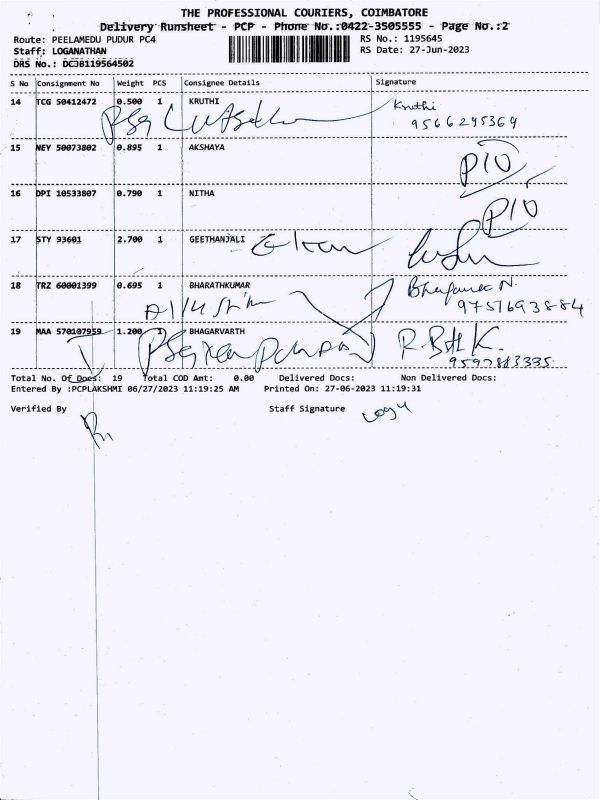 THE PROFESSIONAL COURIERS, COIMBATORE
Delivery Runsheet - PCP - Phone No.:0422-3505555 - Page No.:2
Route: PEELAMEDU PUDUR PC4 RS No.: 1195645
Staff: LOGANATHAN RS Date: 27-Jun-2023
DRS No.: DCJB119564502
S No Consignment No Weight PCS Consignee Details Signature
14 TCG 50412472 0.500 1 KRUTHI Kruthi
PSG 9566295369
15 NEY 50073802 0.895 1 AKSHAYA
P10
16 DPI 10533807 0.790 1 NITHA
P10
17 STY 93601 2.700 1 GEETHANJALI
18 TRZ 60001399 0.695 1 BHARATHKUMAR
9751693884
19 MAA 570107959 1.200 1 BHAGARVARTH
Total No. Of Docs: 19 Total COD Amt: 0.00 Delivered Docs: Non Delivered Docs:
Entered By :PCPLAKSHMI 06/27/2023 11:19:25 AM Printed On: 27-06-2023 11:19:31
Verified By Staff Signature